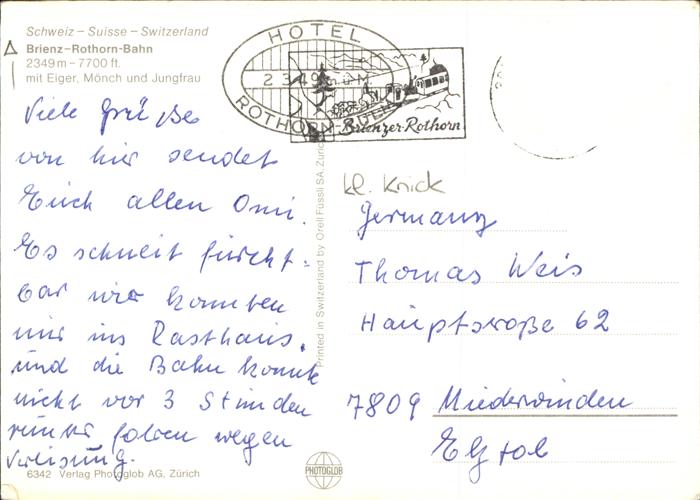 Schweiz – Suisse – Switzerland
Brienz–Rothorn-Bahn
2349 m – 7700 ft.
mit Eiger, Mönch und Jungfrau
HOTEL
2349 m.ü.M.
ROTHORN-KULM
Brienzer-Rothorn
Viele Grüße
von hier sendet
Euch allen Omi.
Es schneit furcht=
bar wir konnten
nur ins Rasthaus.
und die Bahn konnte
nicht vor 3 Stunden
runter fahren wegen
Vereisung.
kl. Knick
Germany
Thomas Weis
Hauptstroße 62
7809 Niederwinden
Elztal
Printed in Switzerland by Orell Füssli SA, Zürich
6342 Verlag Photoglob AG, Zürich
PHOTOGLOB